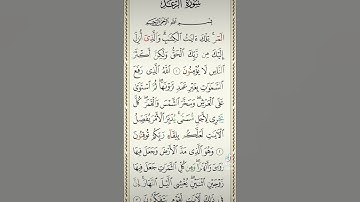 سُورَةُ الرَّعْدِ
بِسْمِ اللَّهِ الرَّحْمَٰنِ الرَّحِيمِ
الٓمٓر ۚ تِلْكَ ءَايَٰتُ الْكِتَٰبِ ۗ وَالَّذِىٓ أُنزِلَ
إِلَيْكَ مِن رَّبِّكَ الْحَقُّ وَلَٰكِنَّ أَكْثَرَ
النَّاسِ لَا يُؤْمِنُونَ ١ اللَّهُ الَّذِى رَفَعَ
السَّمَٰوَٰتِ بِغَيْرِ عَمَدٍ تَرَوْنَهَا ۖ ثُمَّ اسْتَوَىٰ
عَلَى الْعَرْشِ ۖ وَسَخَّرَ الشَّمْسَ وَالْقَمَرَ ۖ كُلٌّ
يَجْرِى لِأَجَلٍ مُّسَمًّى ۚ يُدَبِّرُ الْأَمْرَ يُفَصِّلُ
الْءَايَٰتِ لَعَلَّكُم بِلِقَآءِ رَبِّكُمْ تُوقِنُونَ
٢ وَهُوَ الَّذِى مَدَّ الْأَرْضَ وَجَعَلَ فِيهَا
رَوَٰسِىَ وَأَنْهَٰرًا ۖ وَمِن كُلِّ الثَّمَرَٰتِ جَعَلَ فِيهَا
زَوْجَيْنِ اثْنَيْنِ ۖ يُغْشِى الَّيْلَ النَّهَارَ ۚ إِنَّ
فِى ذَٰلِكَ لَءَايَٰتٍ لِّقَوْمٍ يَتَفَكَّرُونَ ٣